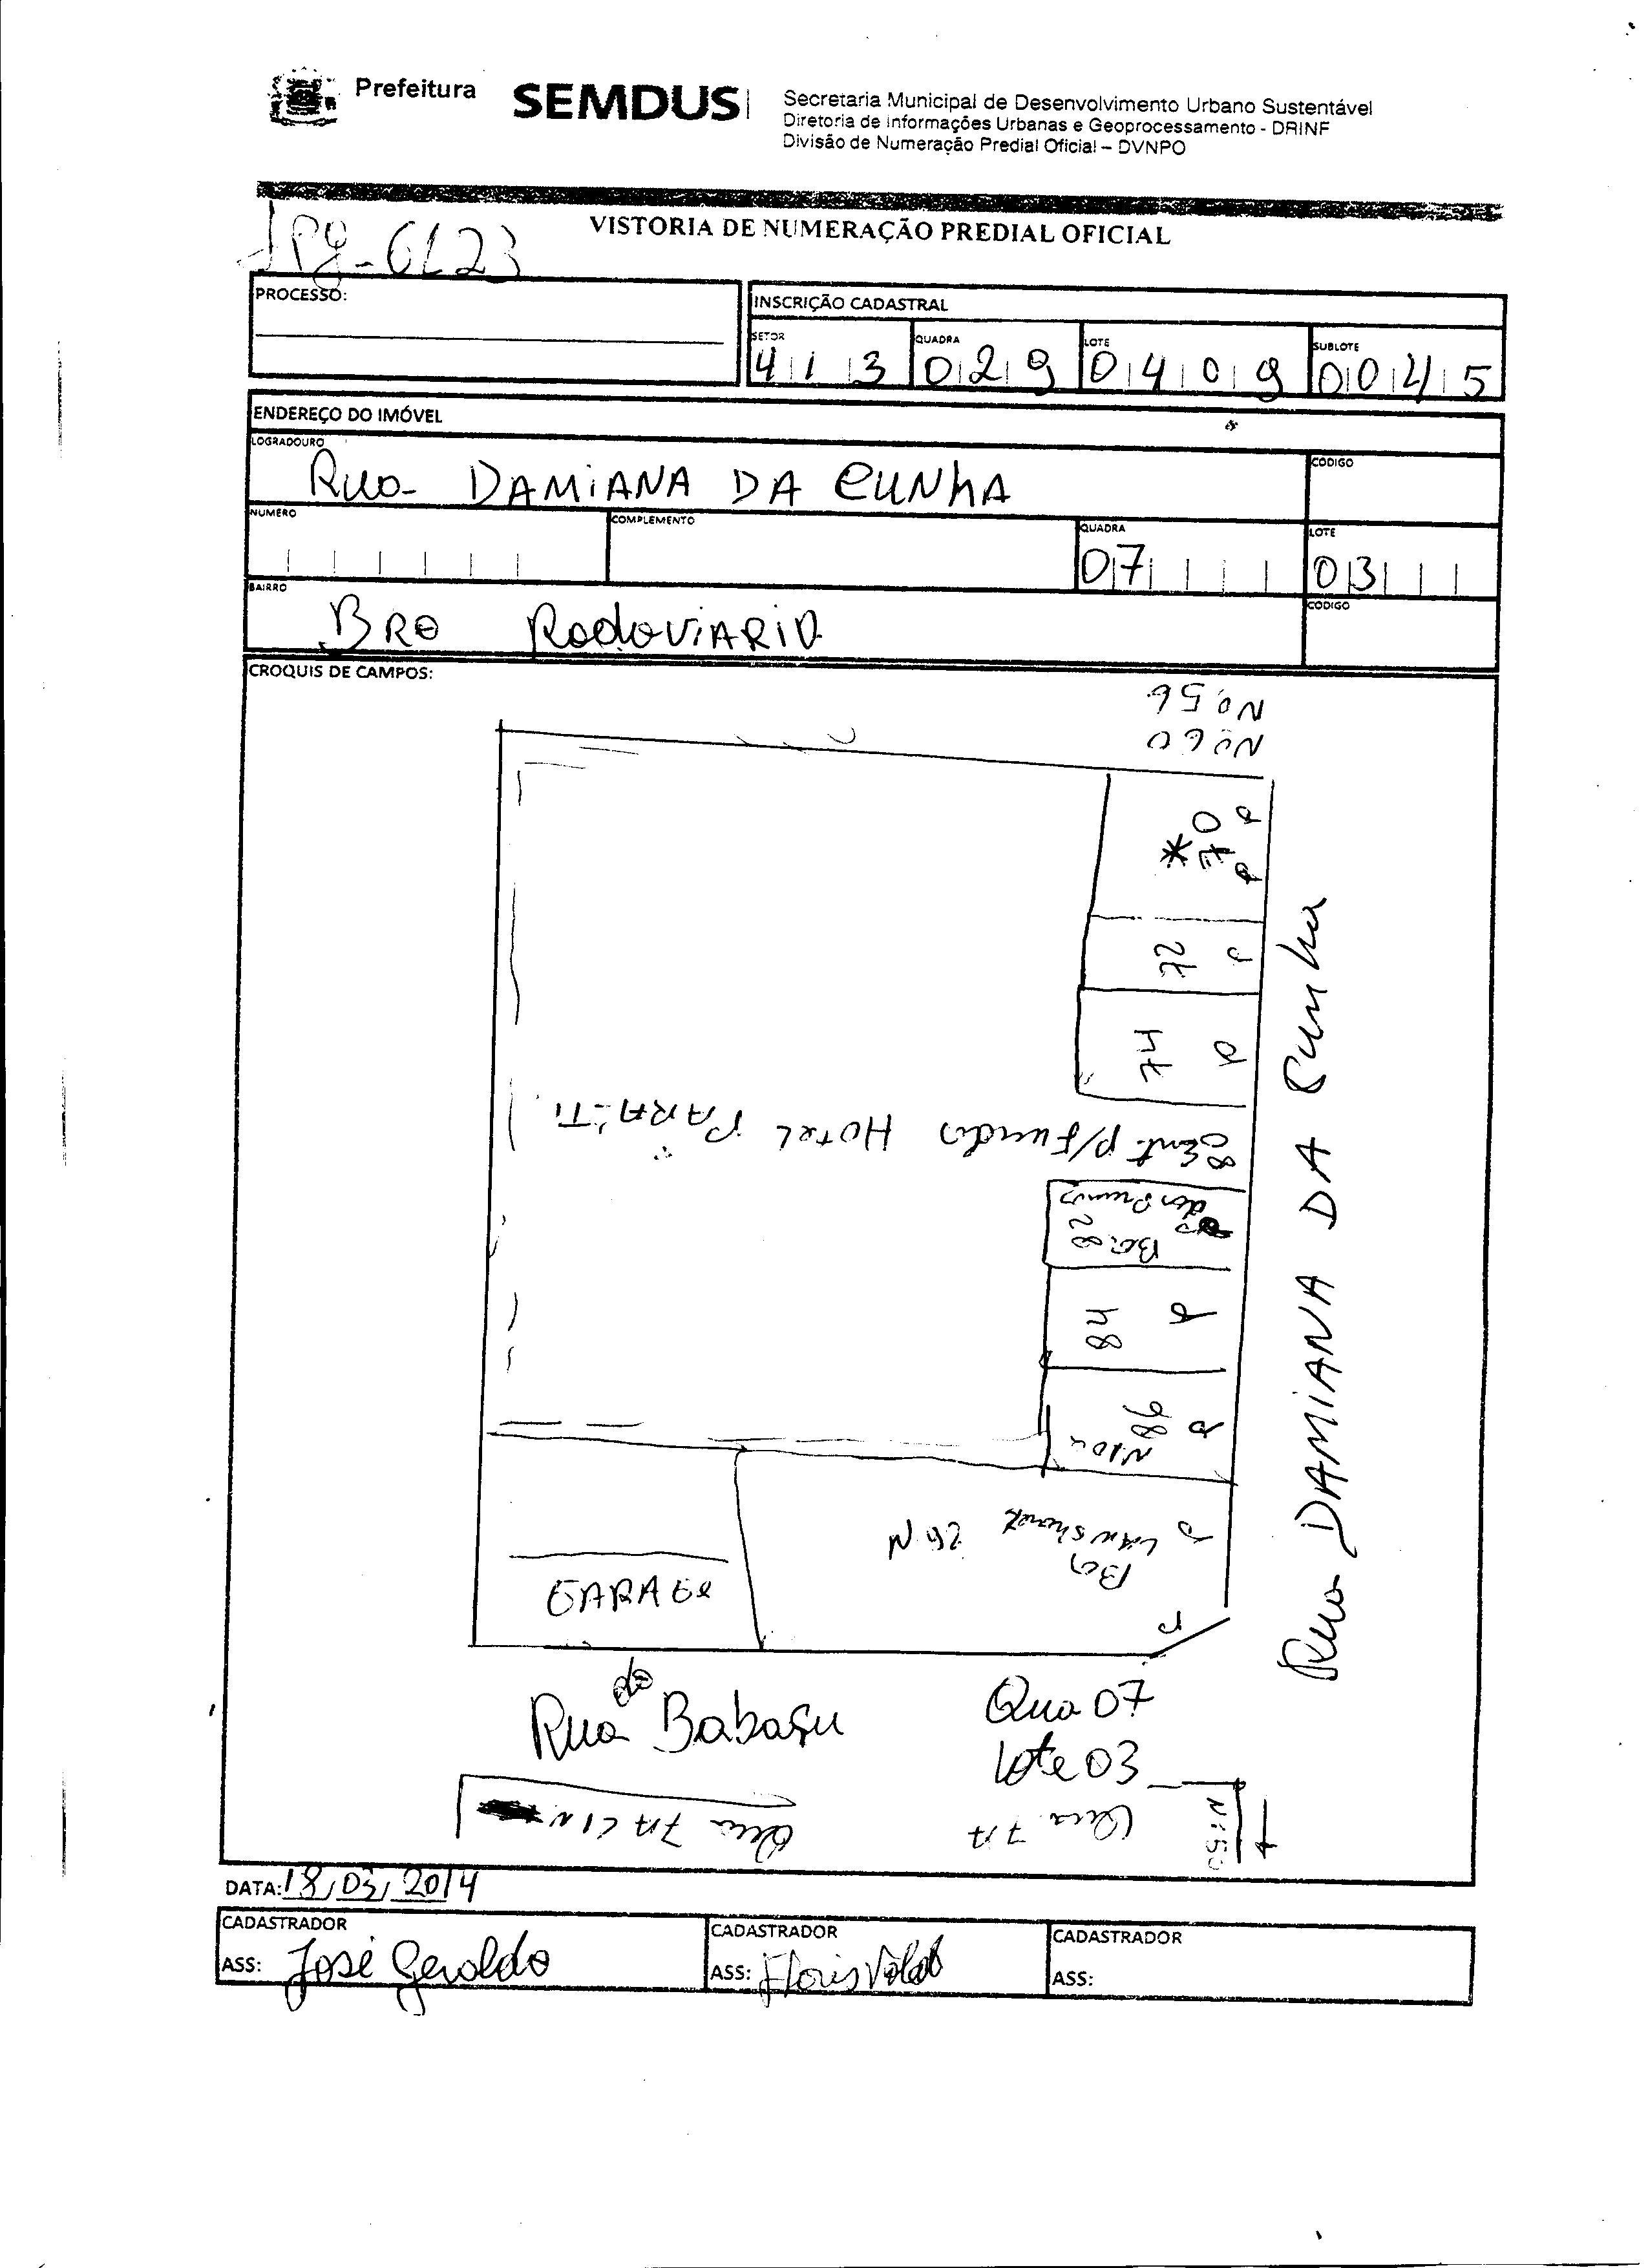 Prefeitura
SEMDUS
Secretaria Municipal de Desenvolvimento Urbano Sustentável
Diretoria de Informações Urbanas e Geoprocessamento - DRINF
Divisão de Numeração Predial Oficial – DVNPO
VISTORIA DE NUMERAÇÃO PREDIAL OFICIAL
JPg-6123
PROCESSO:
INSCRIÇÃO CADASTRAL
SETOR QUADRA LOTE SUBLOTE
413 029 0409 0045
ENDEREÇO DO IMÓVEL
LOGRADOURO CÓDIGO
Rua DAMiANA DA CUNhA
NUMERO COMPLEMENTO QUADRA LOTE
07 03
BAIRRO CODIGO
BRO RodoviARiO
CROQUIS DE CAMPOS:
No 56
No 60
* 70 P P
72 P
74 P
Ent. p/ Fundos HOTEL PARA-TI
Box 82
84 P
86 P
N 92 P
GARAGe
Rua DAMiANA DA Cunha
Rua do Babaçu
Qua 07
Lote 03
Qua 7A
Qua 7A
DATA: 18/03/2014
CADASTRADOR CADASTRADOR CADASTRADOR
ASS: José Geraldo ASS: Florisvaldo ASS: